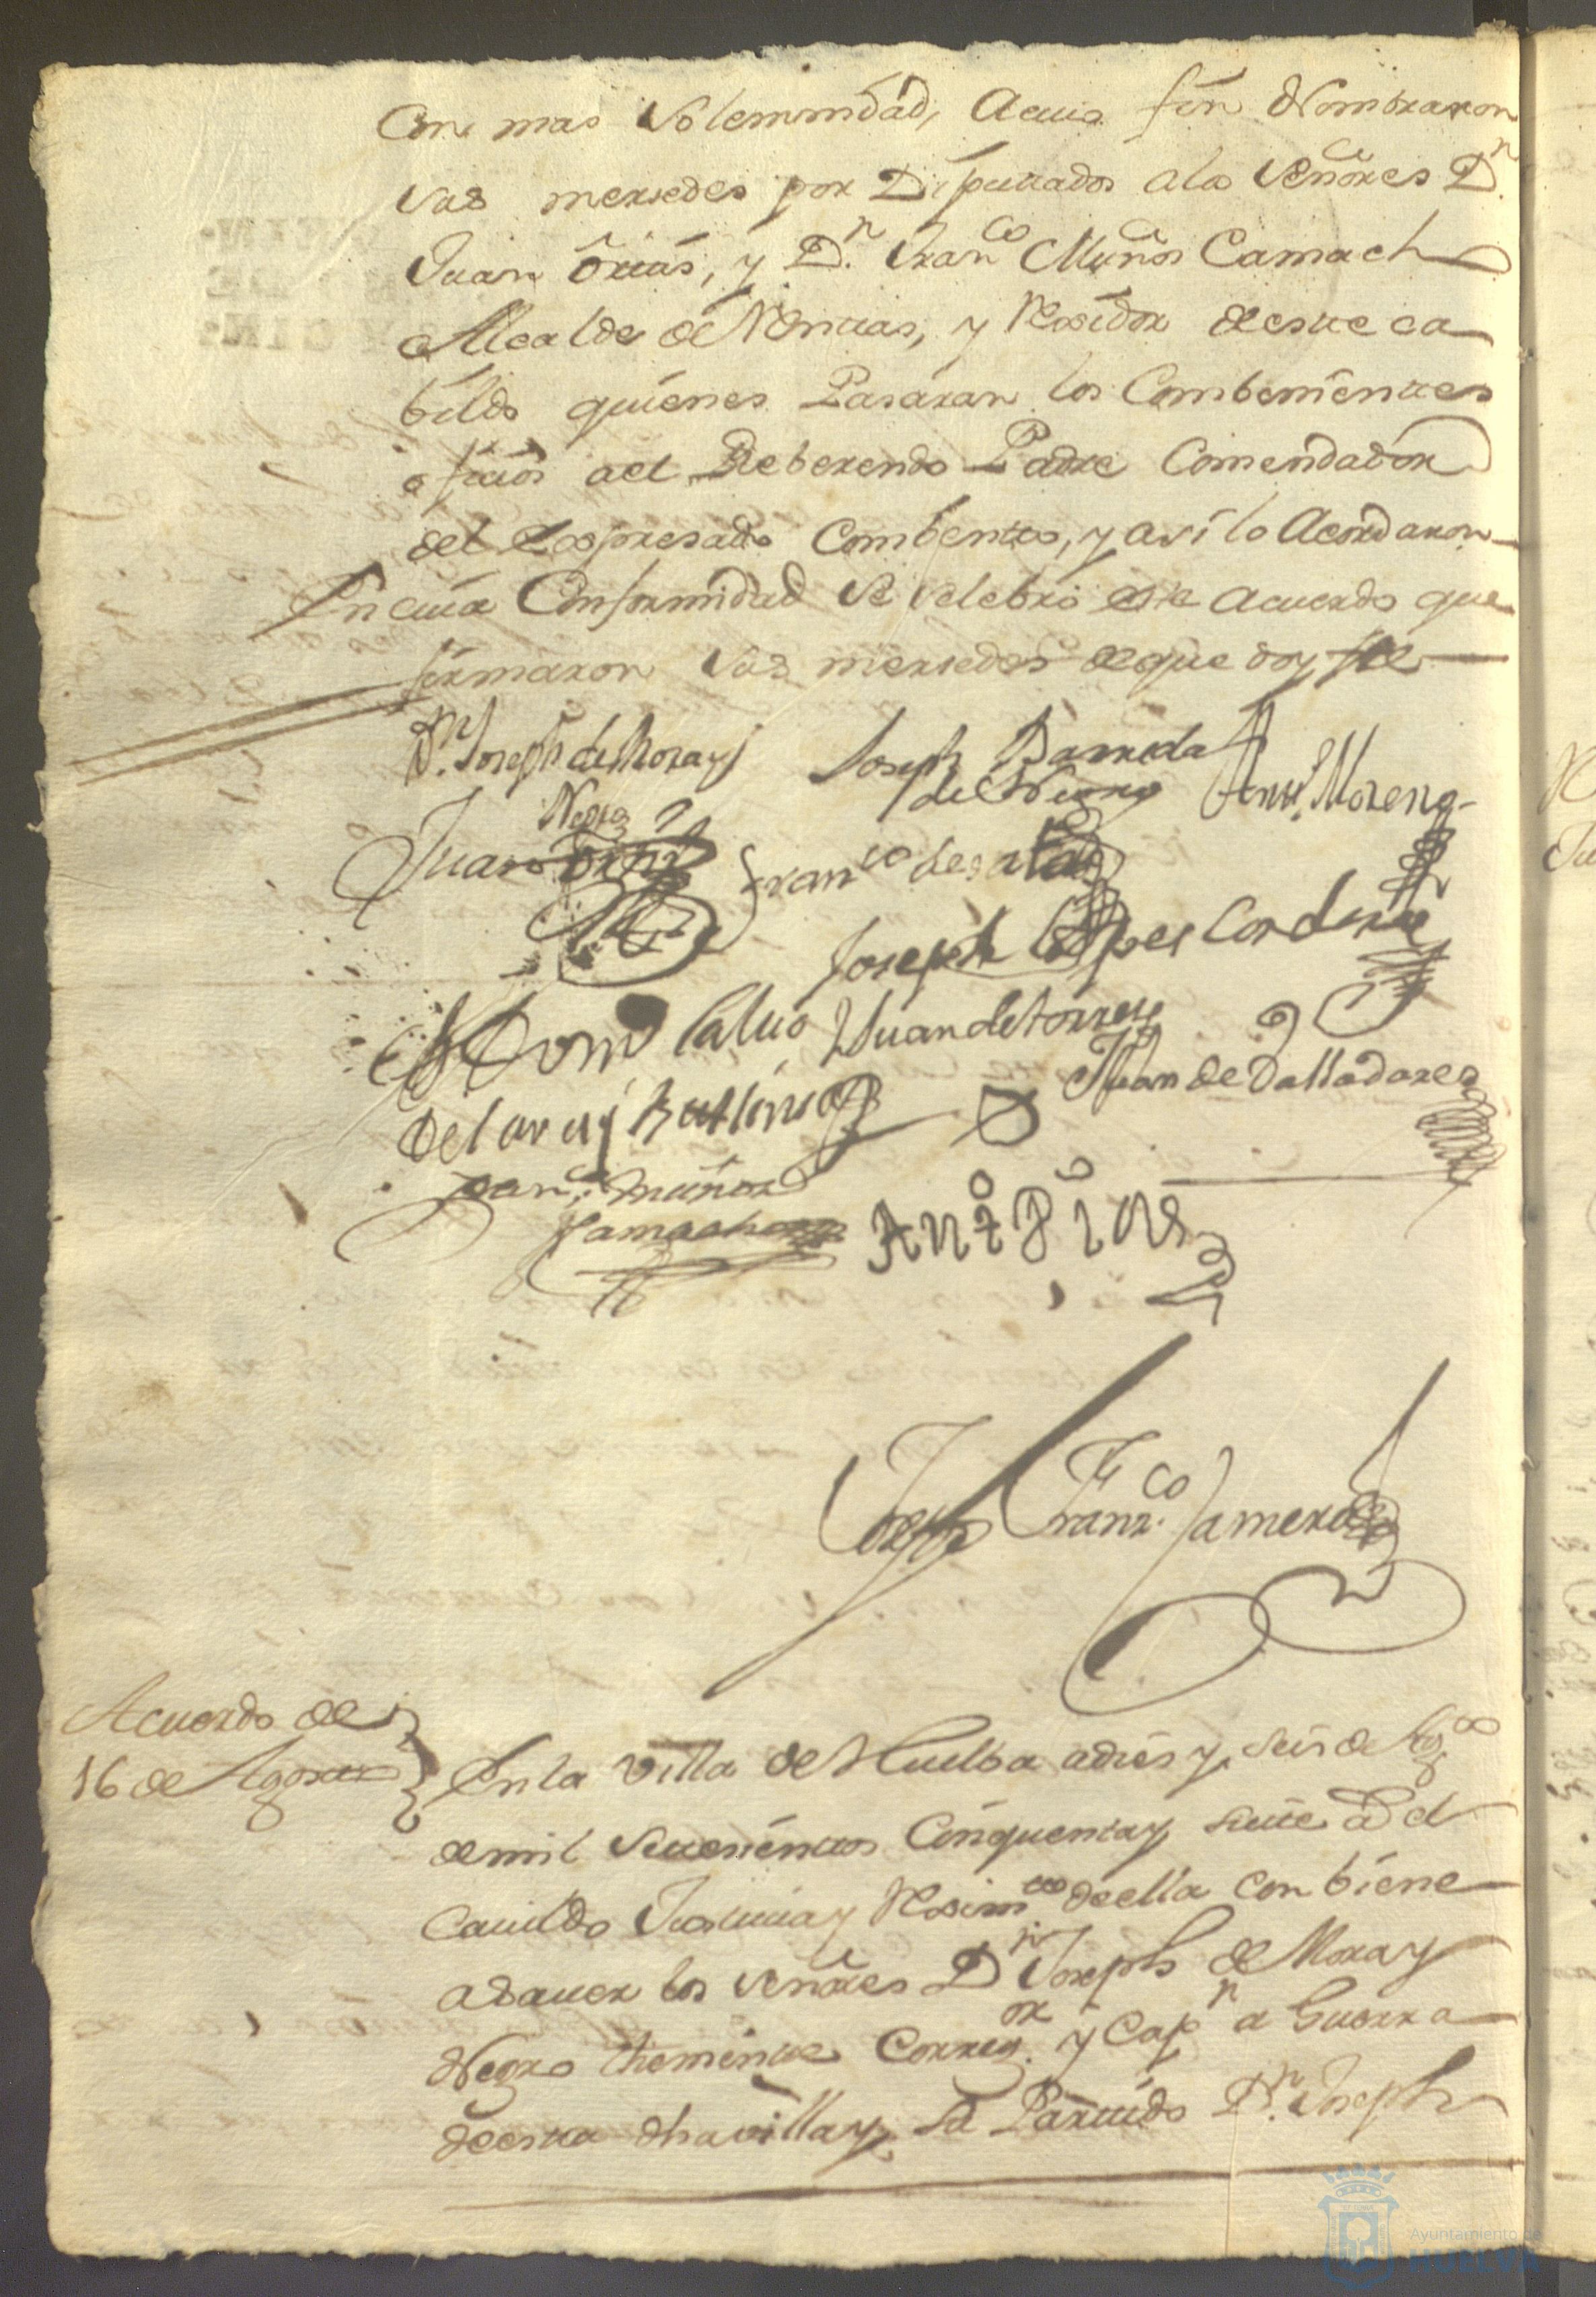 Con mas Solemnidad, acuio fin Nombraron
Sus mersedes por Diputados a los Señores Dn.
Juan Ortis, y Dn. Franco Muños Camacho
Alcalde de Novicias, y Rexidor de este ca
bildo quienes Pasaran los Combenientes
ofisios ael Reberendo Padre Comendador
del Espresado Combento, y así lo Acordaron
En cuia Conformidad se Selebró este acuerdo que
firmaron Sus mersedes de que doy fee
Dn. Joseph de Mora y
Negro
Joseph Barreda
Antt. Moreno
Juan Ortiz
Franco de
Joseph Lopes Cordero
Juan de torres
Juan de Balladares
Franco. Muñoz
Camacho
Joseph Franco. Jamera
Acuerdo de
16 de Agosto
En la Villa de Huelba a dies y seis de Agto
de mil Setesientos Cinquenta y siete a el
Cavildo Justicia y Reximto de ella conbiene
a saver los señores Dn Joseph de Mora y
Negro theniente Corregor. y Capn a Guerra
de esta dha villa y su Partido Dn. Joseph
Ayuntamiento de
HUELVA